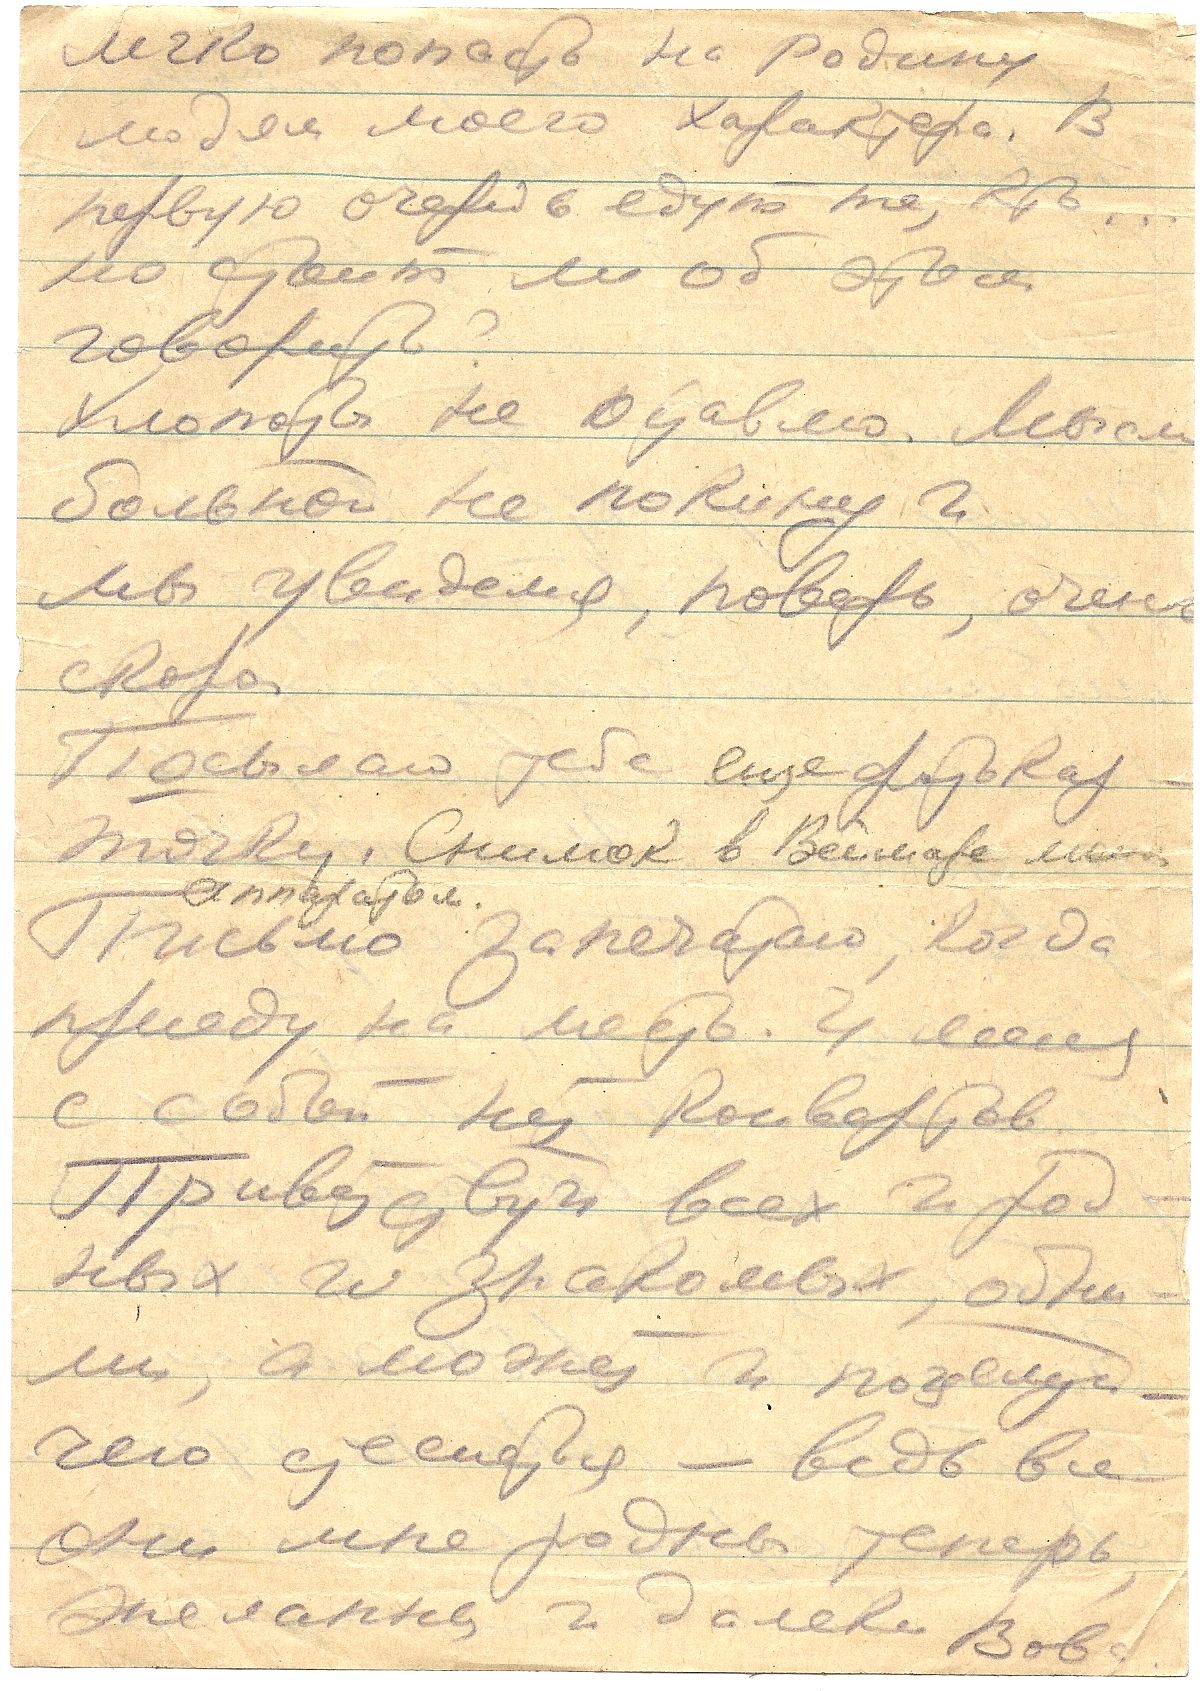 легко попасть на Родину
людям моего характера. В
первую очередь едут те, кто...
но стоит ли об этом
говорить?
Хлопоты не оставлю. Мысли
больной не покину и
мы увидемся, поверь, очень
скоро.
Посылаю тебе еще фотокар-
точку. Снимок в Веймаре моим
аппаратом.
Письмо запечатаю, когда
приеду на место. У меня
с собой нет конвертов.
Приветствуй всех и род-
ных и знакомых, обни-
ми, а может и поцелуй -
чего стесняться — ведь все
они мне родны теперь,
желанны и далеки Вова.